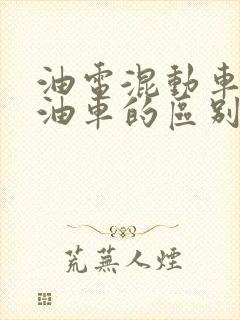 油電混動車
油車的區别
荒蕪人煙